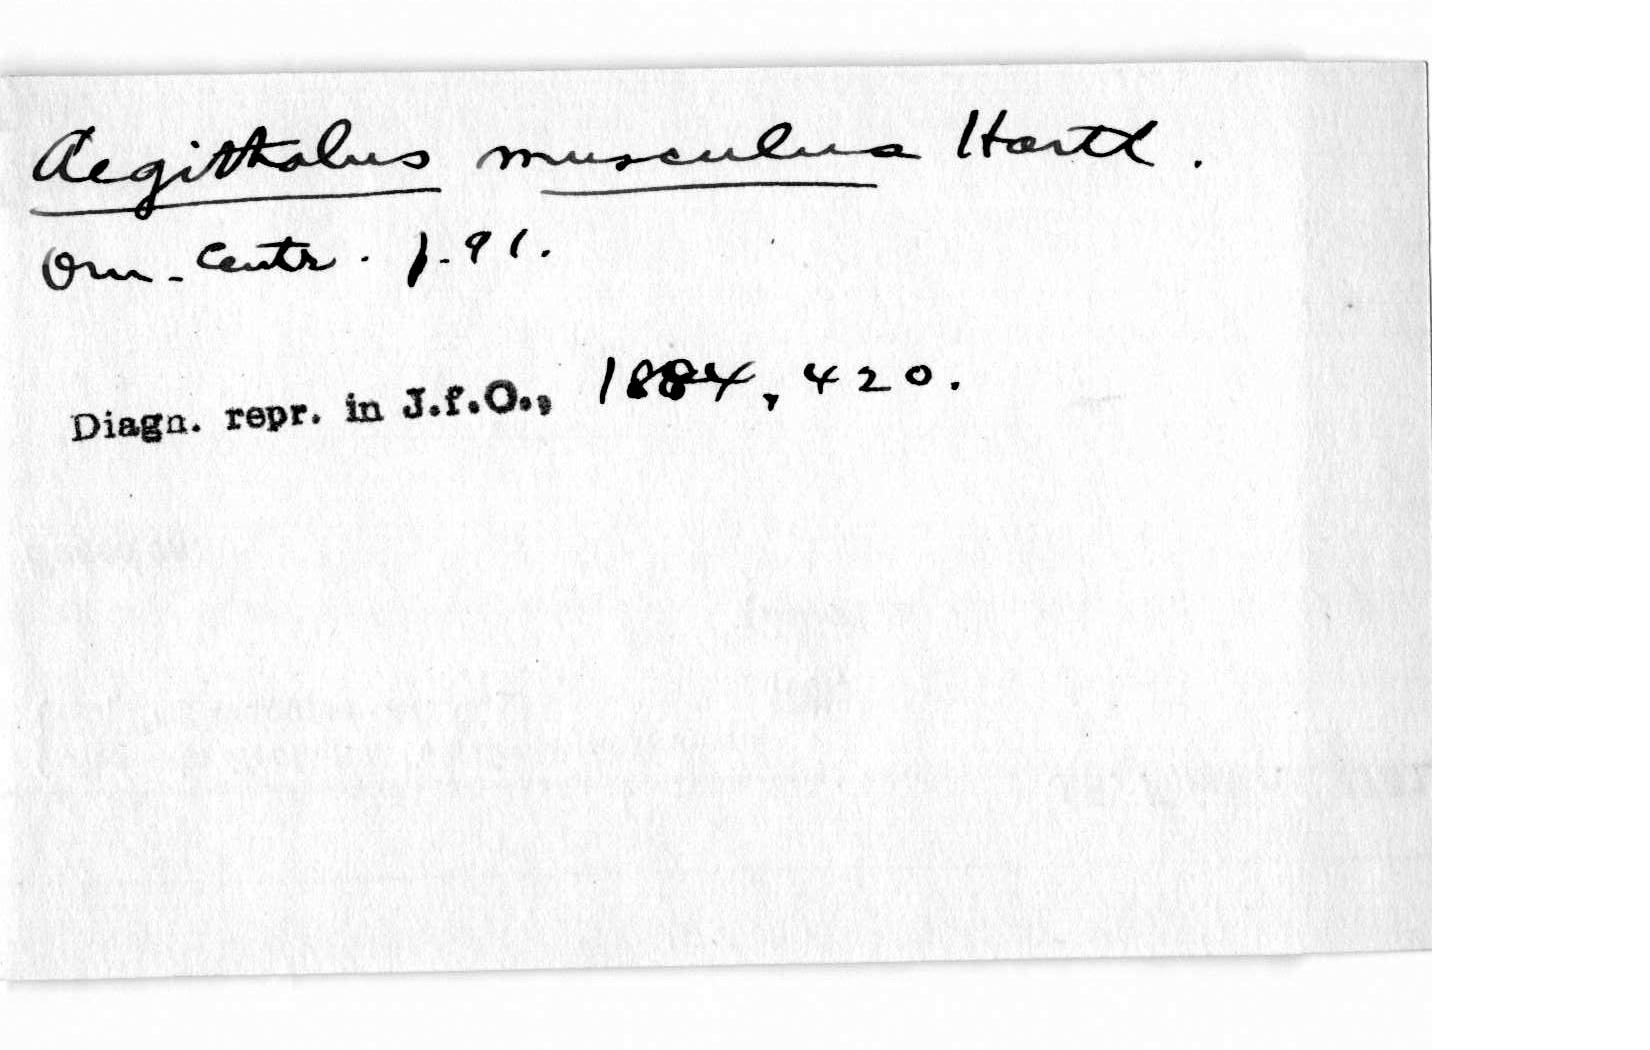 Aegithalus musculus Hartl.
Orn. Centr. p. 91.
Diagn. repr. in J.f.O., 1884, 420.